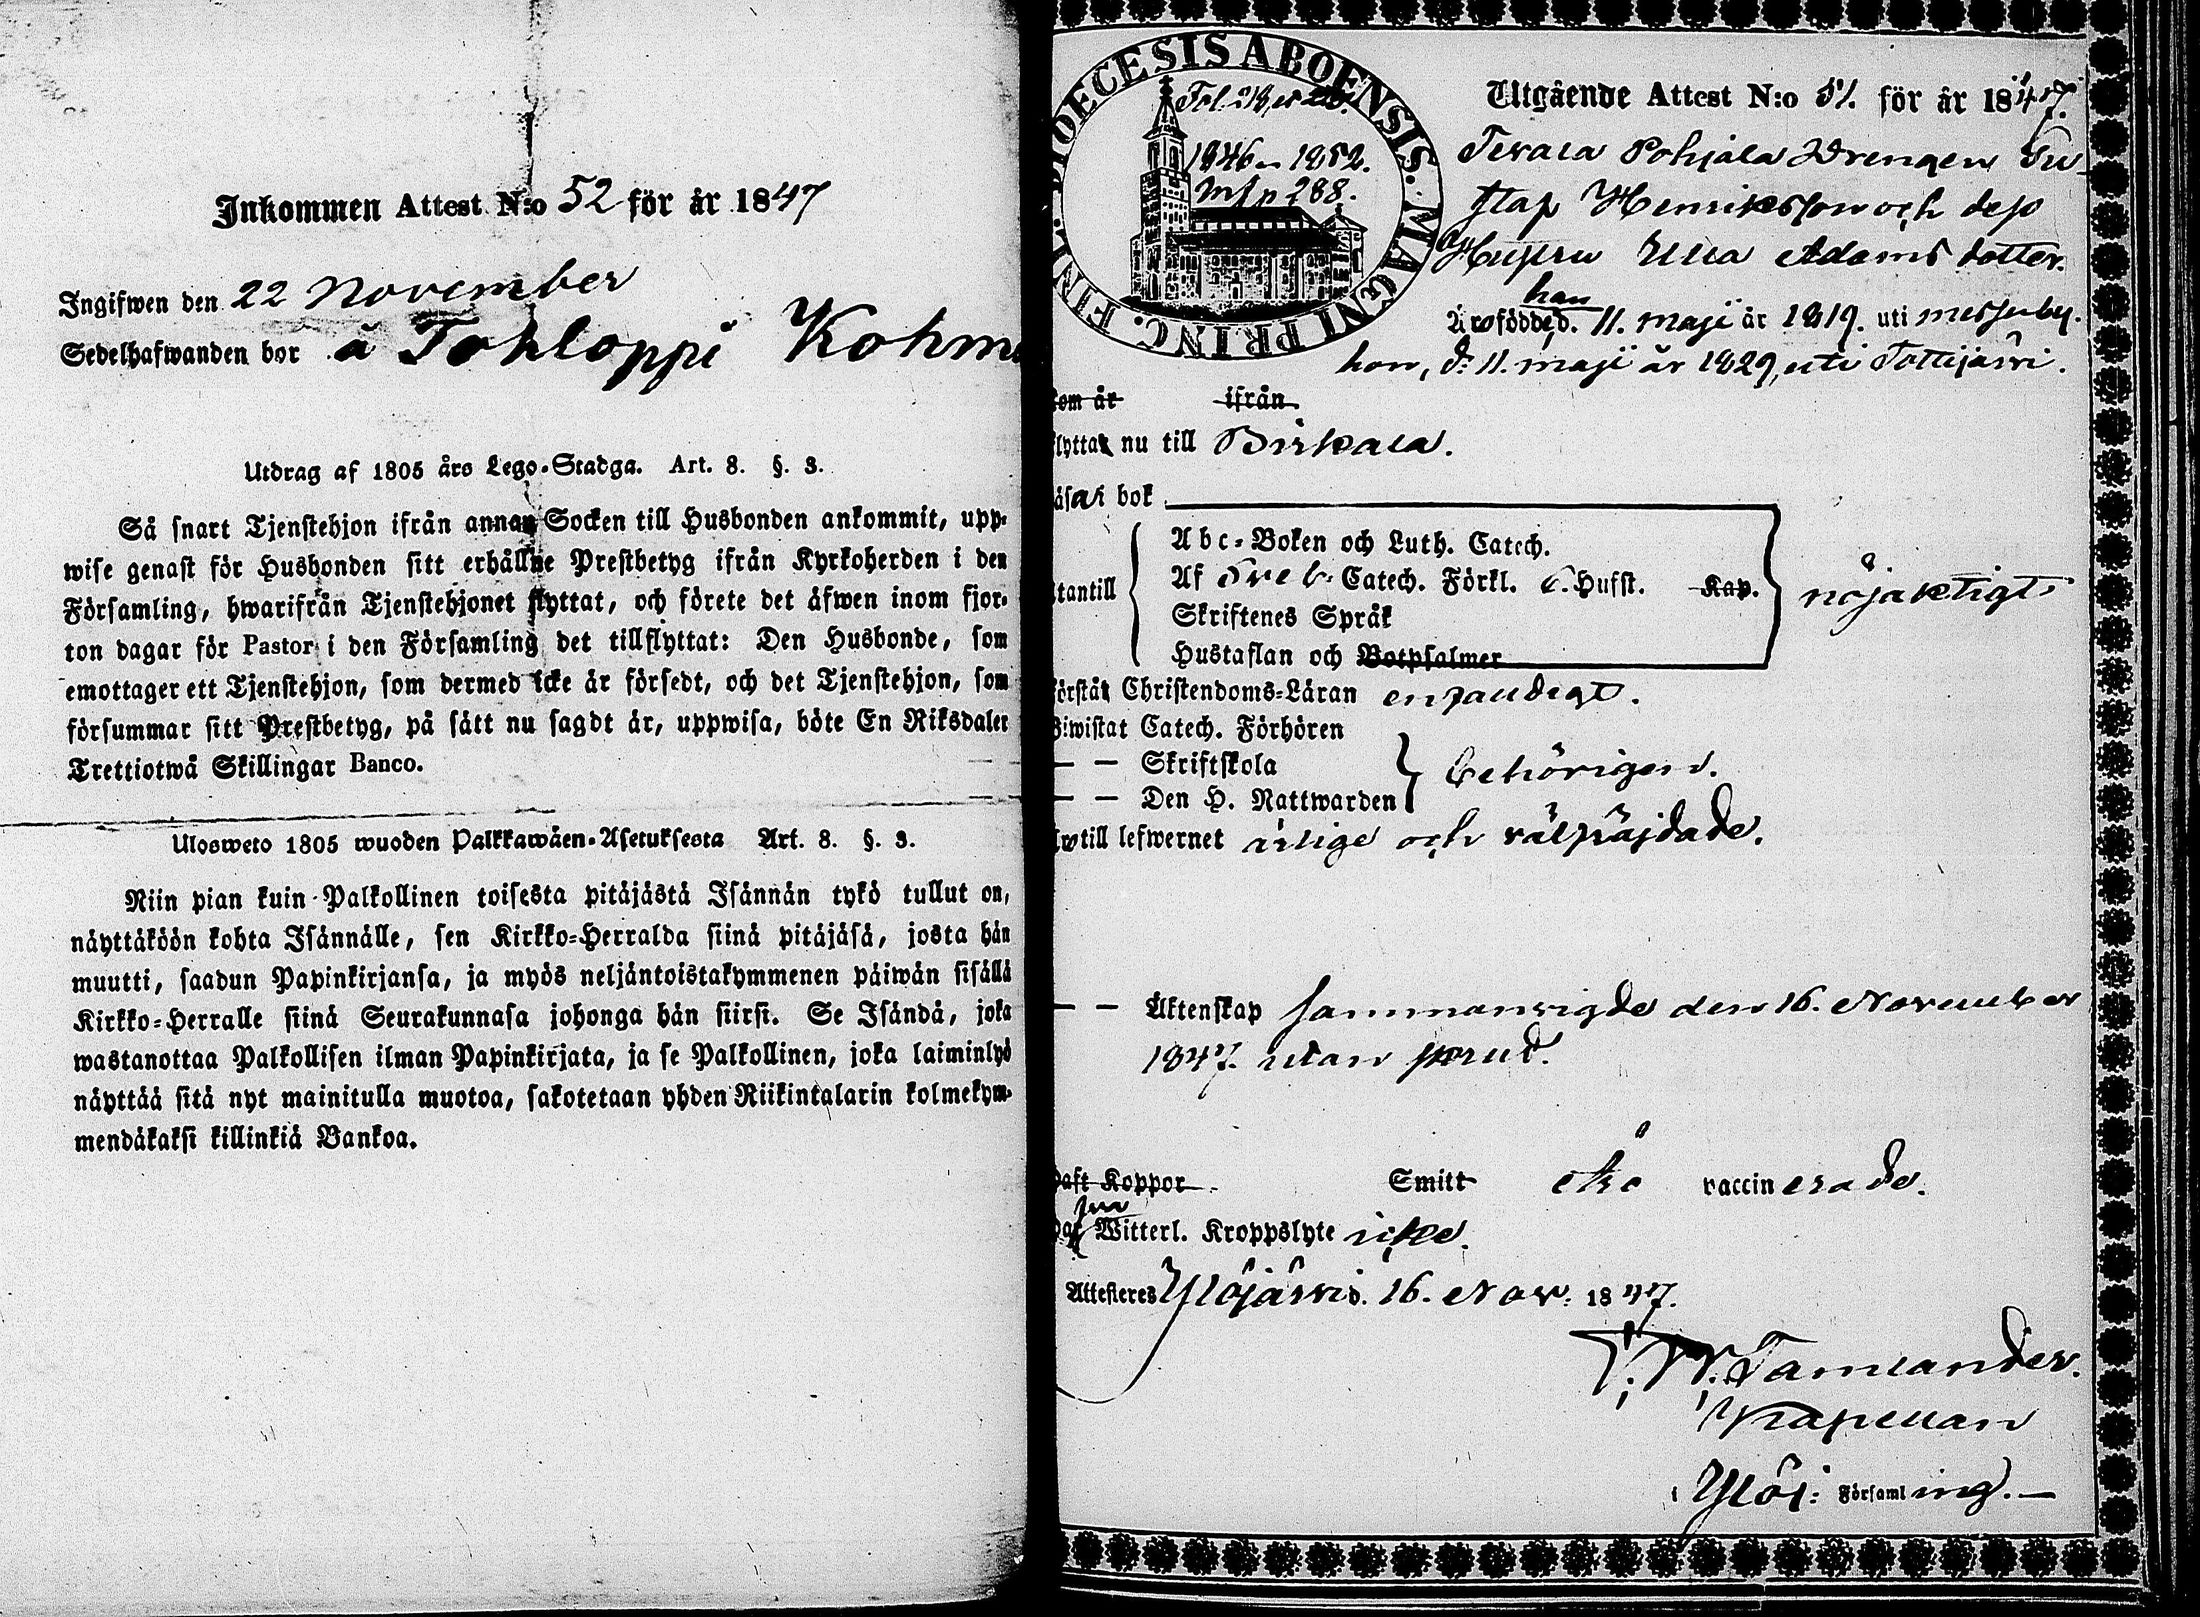 Inkommen Attest N:o 52 för år 1847
Ingifwen den 22 November
Sedelhafwanden bor å Tohloppi Kohm
Utdrag af 1805 års Lego-Stadga. Art. 8. §. 3.
Så snart Tjenstehjon ifrån annan Socken till Husbonden ankommit, upp-
wise genast för Husbonden sitt erhållne Prestbetyg ifrån Kyrkoherden i den
Församling, hwarifrån Tjenstehjonet flyttat, och förete det äfwen inom fjor-
ton dagar för Pastor i den Församling det tillflyttat: Den Husbonde, som
emottager ett Tjenstehjon, som dermed icke är försedt, och det Tjenstehjon, som
försummar sitt Prestbetyg, på sätt nu sagdt är, uppwisa, böte En Riksdaler
Trettiotwå Skillingar Banco.
Ulosweto 1805 wuoden Palkkawäen-Asetuksesta Art. 8. §. 3.
Niin pian kuin Palkollinen toisesta pitäjästä Isännän tykö tullut on,
näyttäköön kohta Isännälle, sen Kirkko-Herralda siinä pitäjäsä, josta hän
muutti, saadun Papinkirjansa, ja myös neljäntoistakymmenen päiwän sisällä
Kirkko-Herralle siinä Seurakunnasa johonga hän siirsi. Se Isändä, joka
wastanottaa Palkollisen ilman Papinkirjata, ja se Palkollinen, joka laiminlyö
näyttää sitä nyt mainitulla muotoa, sakotetaan yhden Riikintalarin kolmekym-
mendäkaksi killinkiä Bankoa.
DIOECESIS ABOENSIS. MAGNI PRINC. FINL.
1846–1852.
p 288.
Utgående Attest N:o 51. för år 1847.
Pohjala Drengen Gu-
staf Henriksson och dess
Hustru Ulla Adams dotter.
han
Äro födde d. 11. maji år 1819. uti messuby.
hon, d: 11. maji år 1829, uti Tottijärvi.
kom år ifrån
flytta nu till Birkala.
läsa i bok
Abc-Boken och Luth. Catech.
utantill Af Sveb. Catech. Förkl. 6. Hufst. Kap. nöjaktigt
Skriftenes Språk
Hustaflan och Botpsalmer
förstå Christendoms-Läran enfaldigt.
Biwistat Catech. Förhören
— — Skriftskola behörigen.
— — Den H. Nattwarden
till lefwernet ärlige och välfräjdade.
— — Äktenskap sammanvigde den 16. November
1847. utan
Haft Koppor Smitt vaccinerade.
Witterl. Kroppslyte icke.
Attesteres Ylöjärvi d. 16. Nov: 1847.
Tamlander.
Kapellan
i Ylöj: Församling.—